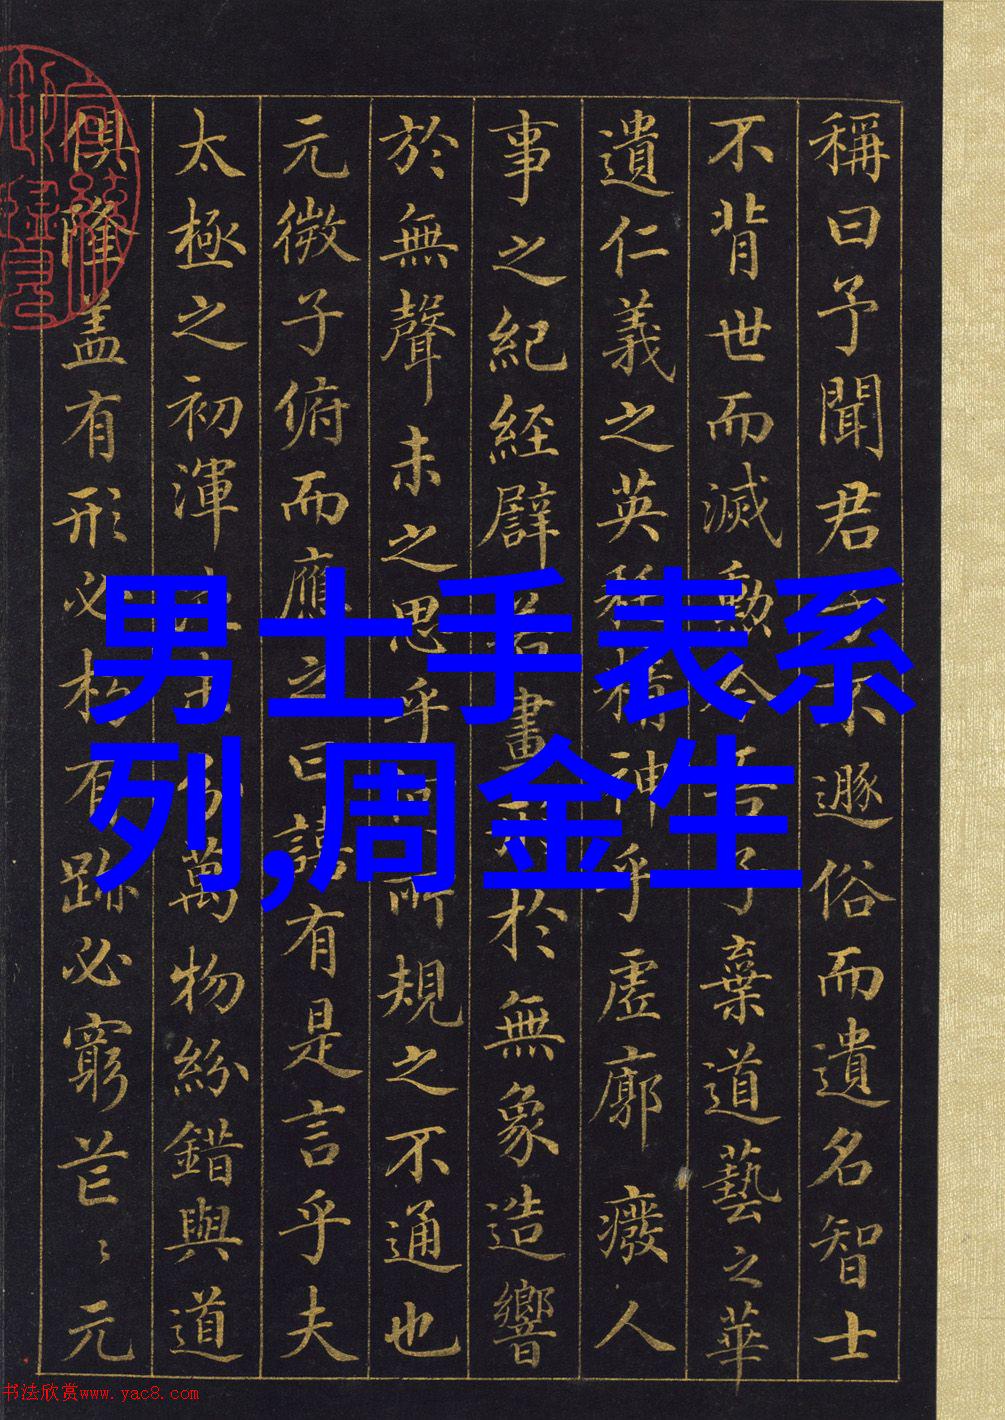 稱曰予聞君子不遯俗而遺名智士
不背世而滅勳今吾子棄道藝之華
遺仁義之英精神乎虛廓廢人
事之紀經譬若畫於無象造響
於無聲未之思乎所規之不通也
元微子俯而應之曰譆有是言乎夫
太極之初渾萬物紛錯與道
俱隆盖有形必朽有跡必窮芒〻元
男士手表系
列,周金生
书法欣赏www.yac8.com